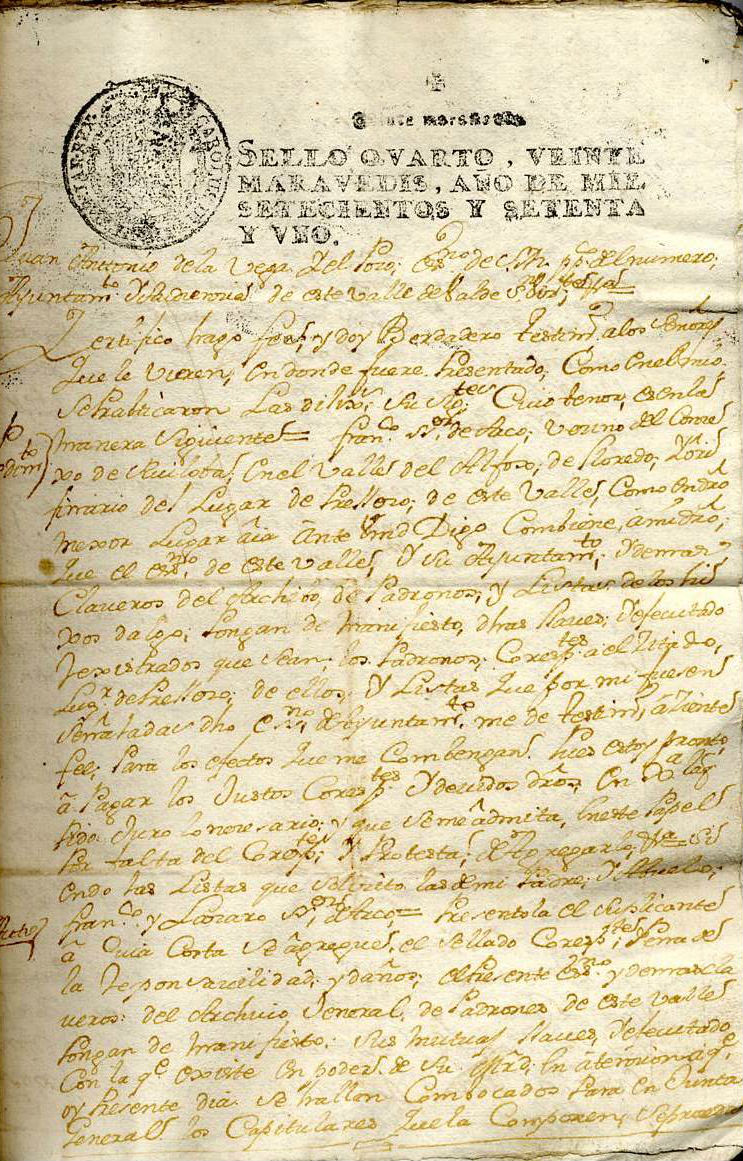 SELLO QVARTO, VEINTE
MARAVEDIS, AÑO DE MIL
SETECIENTOS Y SETENTA
Y VNO.
Juan Anttonio de la Vega del Pozo; essno de S.M. pp. del numero;
Ayuntamto de este Valle de Valde
Zertifico hago fee, y doy Berdadero testimo a los Señores
Que le Vieren, en donde fuere Presentado, Como en el
se Practicaron Las Cuio tenor, es en la
manera Siguiente = Franco de Arco; Vecino del Conce
xo de Ruiloba, en el Valle del Alfoz de Lloredo; Y Ori
jinario del Lugar de Prellezo, de este Valle, Como en dro
mexor Lugar aia Ante Vmd Digo Combiene, a mi dro,
Que el essno de este Valle, Y su Ayuntamto, Y demas
Claveros del Archibo, de Padrones, y Listas de los hi
xos dalgo, Pongan de Manifiesto, dhas llaves; Y efecutado
Y rexistrados que sean, los Padrones, Corespt.es a el Zitado,
Lugr de Prellezo; de ellos, Y Listas Que por mi fuesen
Señaladas dho essno de Ayuntamto me de testimo, a Ziente
fee, Para los efectos Que me Combengan Pues estoy pronto,
a Pagar los Justos Corespt.es Y devidos dros,
Pido Juro lo nezesario; y que se me admita, en este Papel
Por falta del Corespte; Y Protesta, de Agregarlo, Si
endo las Listas que Solizito las de mi Padre, Y Abuelo;
Franco y Lazaro de Arco = Presentola el Suplicante
a Cuia Costa Se agregue, el Sellado Corespte Pena de
la responsavilidad, y daños, el Presente essno y demas Cla
veros del Archivo Jeneral, de Padrones de este Valle
Pongan de Manifiesto, sus mutuas llaves, Y efecutado
Con la qe existe en poder de Su Md; en atenzion a qe
oy Presente dia se hallan Combocados Para en Junta
General los Capitulares Que la Componen, Se Proceda
Auto